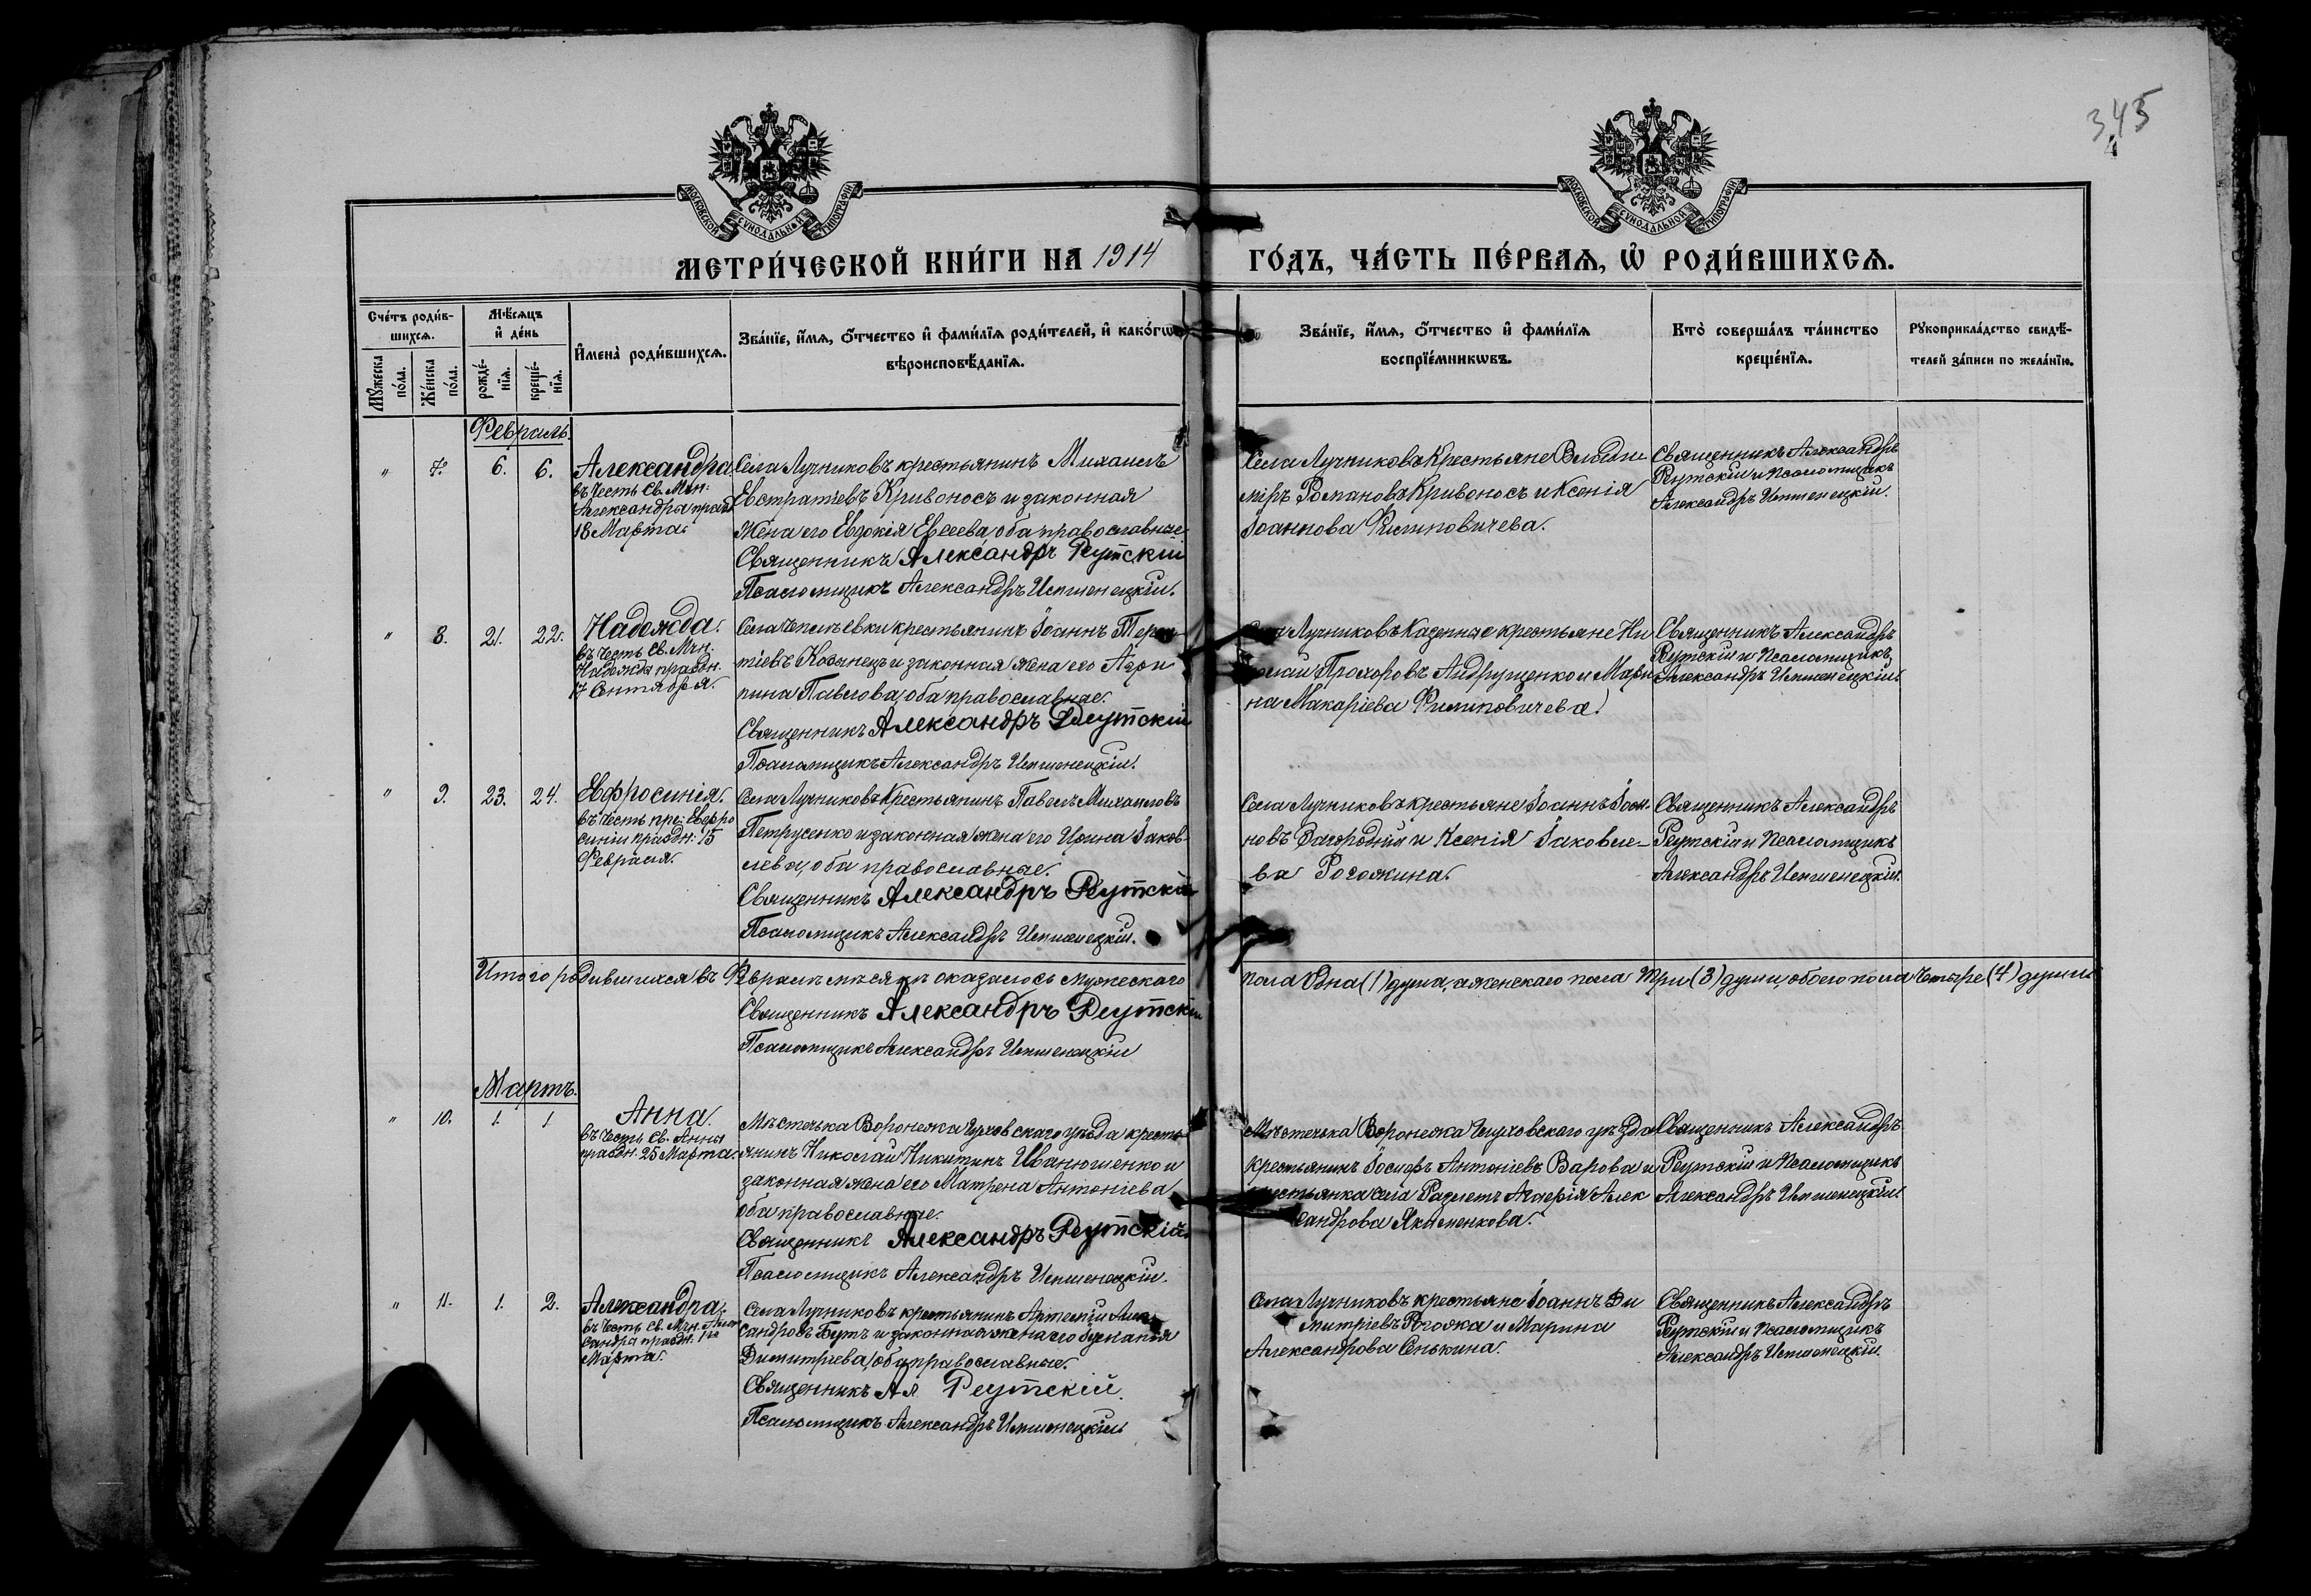 345
МОСКОВСКОЙ СѴНОДАЛЬНОЙ ТИПОГРАФІИ
МОСКОВСКОЙ СѴНОДАЛЬНОЙ ТИПОГРАФІИ
МЕТРИ́ЧЕСКОЙ КНИ́ГИ НА 1914 ГО́ДЪ, ЧА́СТЬ ПЕ́РВАѦ, Ѡ҆ РОДИ́ВШИХСѦ.
Сче́тъ роди́в-
шихсѧ.
Мꙋ́жеска
по́ла.
Же́нска
по́ла.
Мѣ́сѧцъ
и҆ де́нь
рожде́-
нїѧ.
креще́-
нїѧ.
И҆мена̀ роди́вшихсѧ.
Зва́нїе, и҆́мѧ, ѻ҆́тчество и҆ фами́лїѧ роди́телей, и҆ како́гѡ
вѣроисповѣ́данїѧ.
Зва́нїе, и҆́мѧ, ѻ҆́тчество и҆ фами́лїѧ
воспрїе́мникѡвъ.
Кто̀ соверша́лъ та́инство
креще́нїѧ.
Рꙋкоприкла́дство свидѣ́-
телей за́писи по жела́нїю.
Февраль.
" 7. 6. 6.
Александра
въ честь Св. Мчн.
Александры праздн.
18 Марта.
Села Лучниковъ крестьянинъ Михаилъ
Евстратіевъ Кривоносъ и законная
жена его Евдокія Евсеева, оба православные.
Священникъ Александръ Реутскій
Псаломщикъ Александръ
Села Лучниковъ крестьяне Влади
міръ Романовъ Кривоносъ и Ксенія
Іоаннова Филиповичева.
Священникъ Александръ
Реутскій и Псаломщикъ
Александръ
" 8. 21. 22.
Надежда.
въ честь Св. Мчн.
Надежды праздн.
17 Сентября.
Села крестьянинъ Іоаннъ Терен
тіевъ и законная жена его Агри
пина Павлова, оба православные.
Священникъ Александръ Реутскій
Псаломщикъ Александръ
Лучниковъ Казенные крестьяне Ни
колай Прохоровъ Андрущенко и Мари
на Макаріева Филиповичева.
Священникъ Александръ
Реутскій и Псаломщикъ
Александръ
" 9. 23. 24.
Евфросинія.
въ честь пре: Евфро
синіи праздн: 15
Февраля.
Села Лучниковъ крестьянинъ Павелъ Михаиловъ
Петрусенко и законная жена его Ирина Іаков-
лева, оба православные.
Священникъ Александръ Реутскій
Псаломщикъ Александръ
Села Лучниковъ крестьяне Іоаннъ Іоан-
новъ Загородній и Ксенія Іаковле-
ва Рогожина.
Священникъ Александръ
Реутскій и Псаломщикъ
Александръ
Итого родившихся въ Февралѣ мѣсяцѣ оказалось мужескаго пола Одна (1) душа, а женскаго пола Три (3) души, обоего пола Четыре (4) души
Священникъ Александръ Реутскій
Псаломщикъ Александръ
Мартъ.
" 10. 1. 1
Анна.
въ честь Св. Анны
праздн. 25 Марта.
Мѣстечка Воронежа Глуховскаго уѣзда кресть-
янинъ Николай Никитинъ Иванюшенко и
законная жена его Матрена Антоніева
оба православные.
Священникъ Александръ Реутскій
Псаломщикъ Александръ
Мѣстечка Воронежа Глуховского уѣзда
крестьянинъ Іосифъ Антоніевъ Варова и
крестьянка села Гликерія Алек
сандрова Якименкова.
Священникъ Александръ
Реутскій и Псаломщикъ
Александръ
" 11. 1. 2.
Александра.
въ честь Св. Мчн. Алек
сандры праздн. 18
Марта.
Села Лучниковъ крестьянинъ Артемій Алек
сандровъ Бутъ и законная жена его
Димитріева, оба православные.
Священникъ Ал Реутскій.
Псаломщикъ Александръ
Села Лучниковъ крестьяне Іоаннъ Ди
митріевъ Рогожа и Марина
Александрова Сенькина.
Священникъ Александръ
Реутскій и Псаломщикъ
Александръ